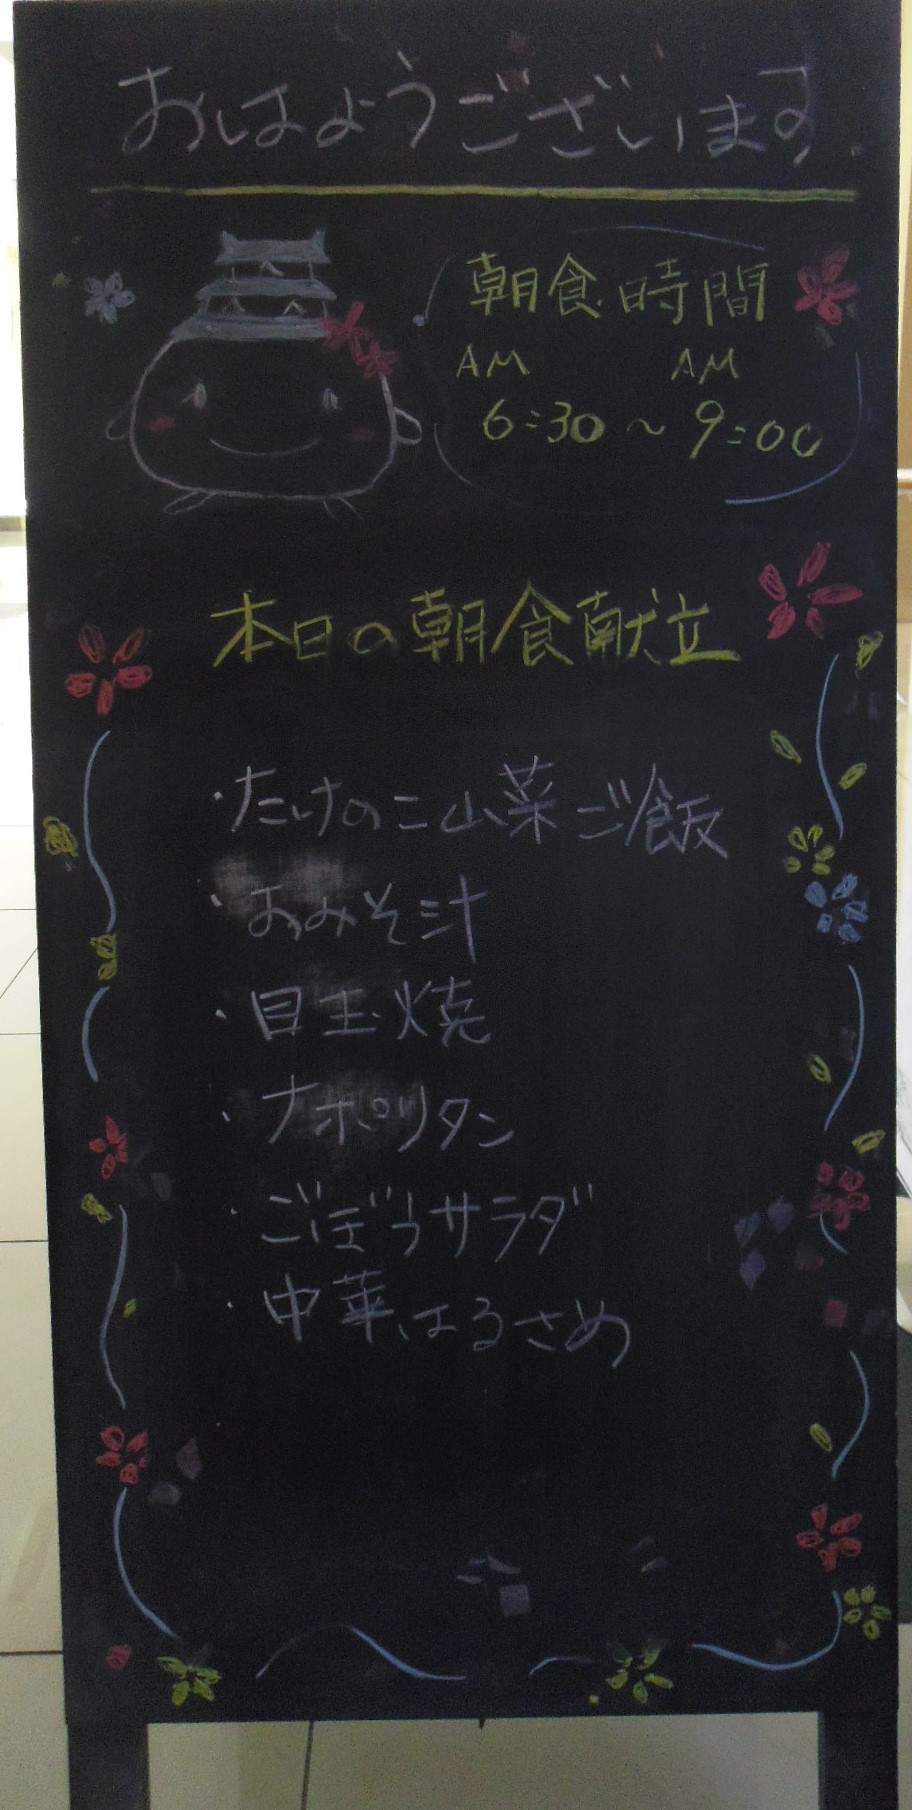 おはようございます
朝食時間
AM AM
6:30～9:00
本日の朝食献立
・たけのこ山菜ご飯
・おみそ汁
・目玉焼
・ナポリタン
・ごぼうサラダ
・中華はるさめ